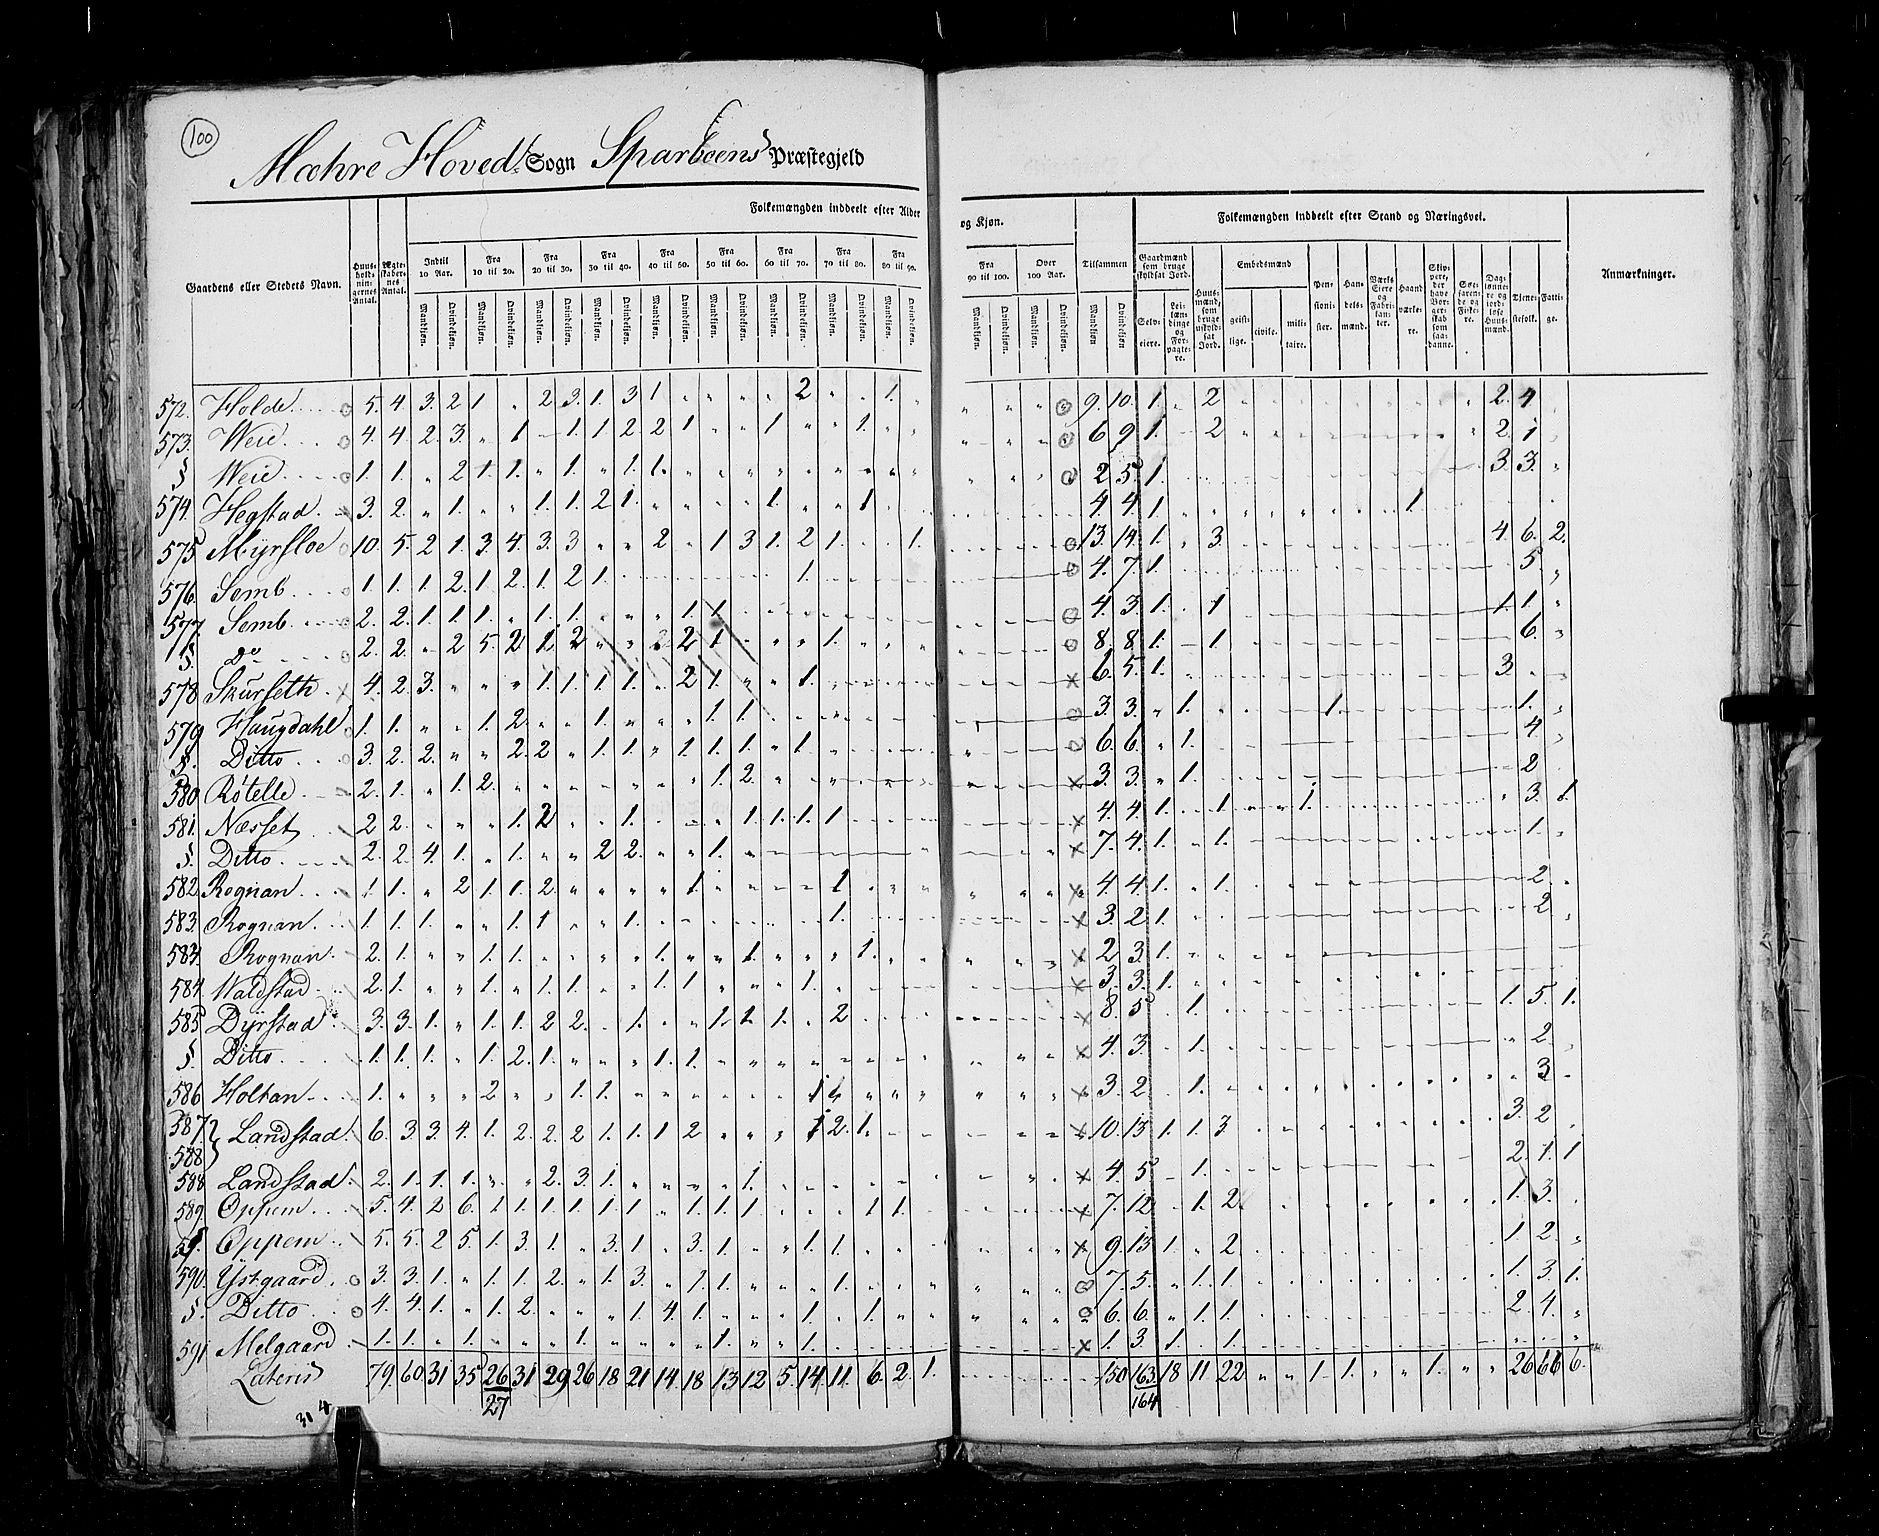 100
Mæhre Hoved Sogn Sparboens Præstegjeld
Folkemængden inddeelt efter Alder og Kjøn.
Folkemængden inddeelt efter Stand og Næringsvei.
Gaardens eller Stedets Navn.
Huusholdningernes Antal.
Ægteskabernes Antal.
Indtil 10 Aar.
Fra 10 til 20.
Fra 20 til 30.
Fra 30 til 40.
Fra 40 til 50.
Fra 50 til 60.
Fra 60 til 70.
Fra 70 til 80.
Fra 80 til 90.
Fra 90 til 100.
Over 100 Aar.
Tilsammen
Mandkjøn. Qvindekjøn.
Gaardmænd som bruge skyldsat Jord.
Selveiere.
Leilændinge og Forpagtere.
Huusmænd, som bruge uskyldsat Jord.
Embedsmænd
geistlige. civile. militaire.
Pensionister.
Handelsmænd.
Værks Eiere og Fabrikanter.
Haandværkere.
Skippere, der have Borgerskab som saadanne.
Søefarende og Fiskere.
Dagslønnere og jordløse Huusmænd.
Tjenestefolk.
Fattige.
Anmærkninger.
572. Holde 5. 4. 3. 2 1 2 3. 1. 3 1 2 1. 9. 10. 1. 2 2. 4
573. Weie 4. 4. 2. 3. 1 1. 1 2. 2 1 1 1. 6 9 1. 2 2. 1
§ Weie 1. 1. 2 1 1. 1. 1. 1. 2 5. 1. 3. 3.
574. Hegstad 3. 2. 1. 1. 1. 2 1. 1. 1 4. 4. 1 1.
575 Myrsloe 10. 5. 2 1. 3. 4. 3. 3 2 1 3 1. 2 1. 1. 13. 14. 1. 3. 4. 6. 2.
576. Semb 1. 1. 1. 2. 1. 2. 1. 2 1. 1. 4. 7. 1. 5.
577. Semb 2. 2. 1. 1. 1. 1. 1. 1. 1. 4. 3. 1. 1 1. 1.
§. Do 2. 2. 2 5. 2 1. 2 2 1 1. 8. 8 1. 1 6.
578 Skurseth 4. 2. 3. 1. 1. 1. 1. 2 1. 1. 6. 5. 1. 3
579 Haugdahl 1. 1. 1. 2. 1. 1. 1. 3. 3. 1. 1. 1.
§. Ditto 3. 2. 2. 2. 2 1. 1. 1. 1. 1. 1. 6. 6. 1. 4
580 Røtelle 2. 1. 1. 2. 1. 2. 3. 3. 1. 2
581. Næsset 2 2. 1. 2 1. 1. 1. 1. 1 4. 4. 1. 1. 1. 3. 1.
§. Ditto 2. 2. 4. 1. 1. 2 2. 1. 7. 4. 1. 1. 1.
582 Rognan 1. 1. 2 1. 1. 2. 1 1 4. 4. 1. 1. 2
583. Rognan 1. 1. 1. 1. 1 1. 1. 3. 2. 1. 2
583. Rognan 2. 1. 1. 1. 1. 1. 1. 2 3. 1.
584 Waldstad 2. 1. 1. 1. 1. 1. 1. 1. 3. 3. 1.
585 Dyrstad 3. 3. 1. 1. 1. 2 2. 1. 1. 1. 1. 2 8. 5 1. 1. 5. 1.
§. Ditto 1. 1. 1. 1. 2. 1. 1. 1. 4. 3. 1. 2.
586 Holtan 1. 2 1. 1. 1 3. 2. 1. 3
587 588 Landstad 6. 3. 3. 4. 1. 2. 2. 2 1. 1. 1 2 1 2. 1. 10. 13 1. 1. 3 3. 2
588 Landstad 2. 1. 1. 1. 2. 3. 1. 1. 4. 5 1. 2. 1. 1
589 Oppem 5. 4. 2 6. 1. 1. 1. 1. 1. 1. 1. 1. 1. 1. 1. 7. 12 1. 2 1. 3.
§. Oppem 5. 5. 2 5. 1. 3. 1. 3. 1. 3. 1. 1. 1. 9. 13 1. 2. 1 2.
590 Ystgaard 3. 3. 1. 1. 1. 2. 1. 3. 1. 1. 1. 7. 5. 1. 1. 1. 3. 1.
§. Ditto 4. 4. 1. 1. 2. 1. 4. 1. 1. 1. 6. 6. 1. 1. 2. 4.
591 Melgaard 1. 1. 1. 1. 1. 1. 1. 3. 1. 1.
Lateris 79. 60. 31 35 26 31 29 26 18 21 14. 18 13 12 5. 14 11. 6. 2. 1. 150 163. 18 11 22 1. 1. 1. 26 66 6.
27 164
314